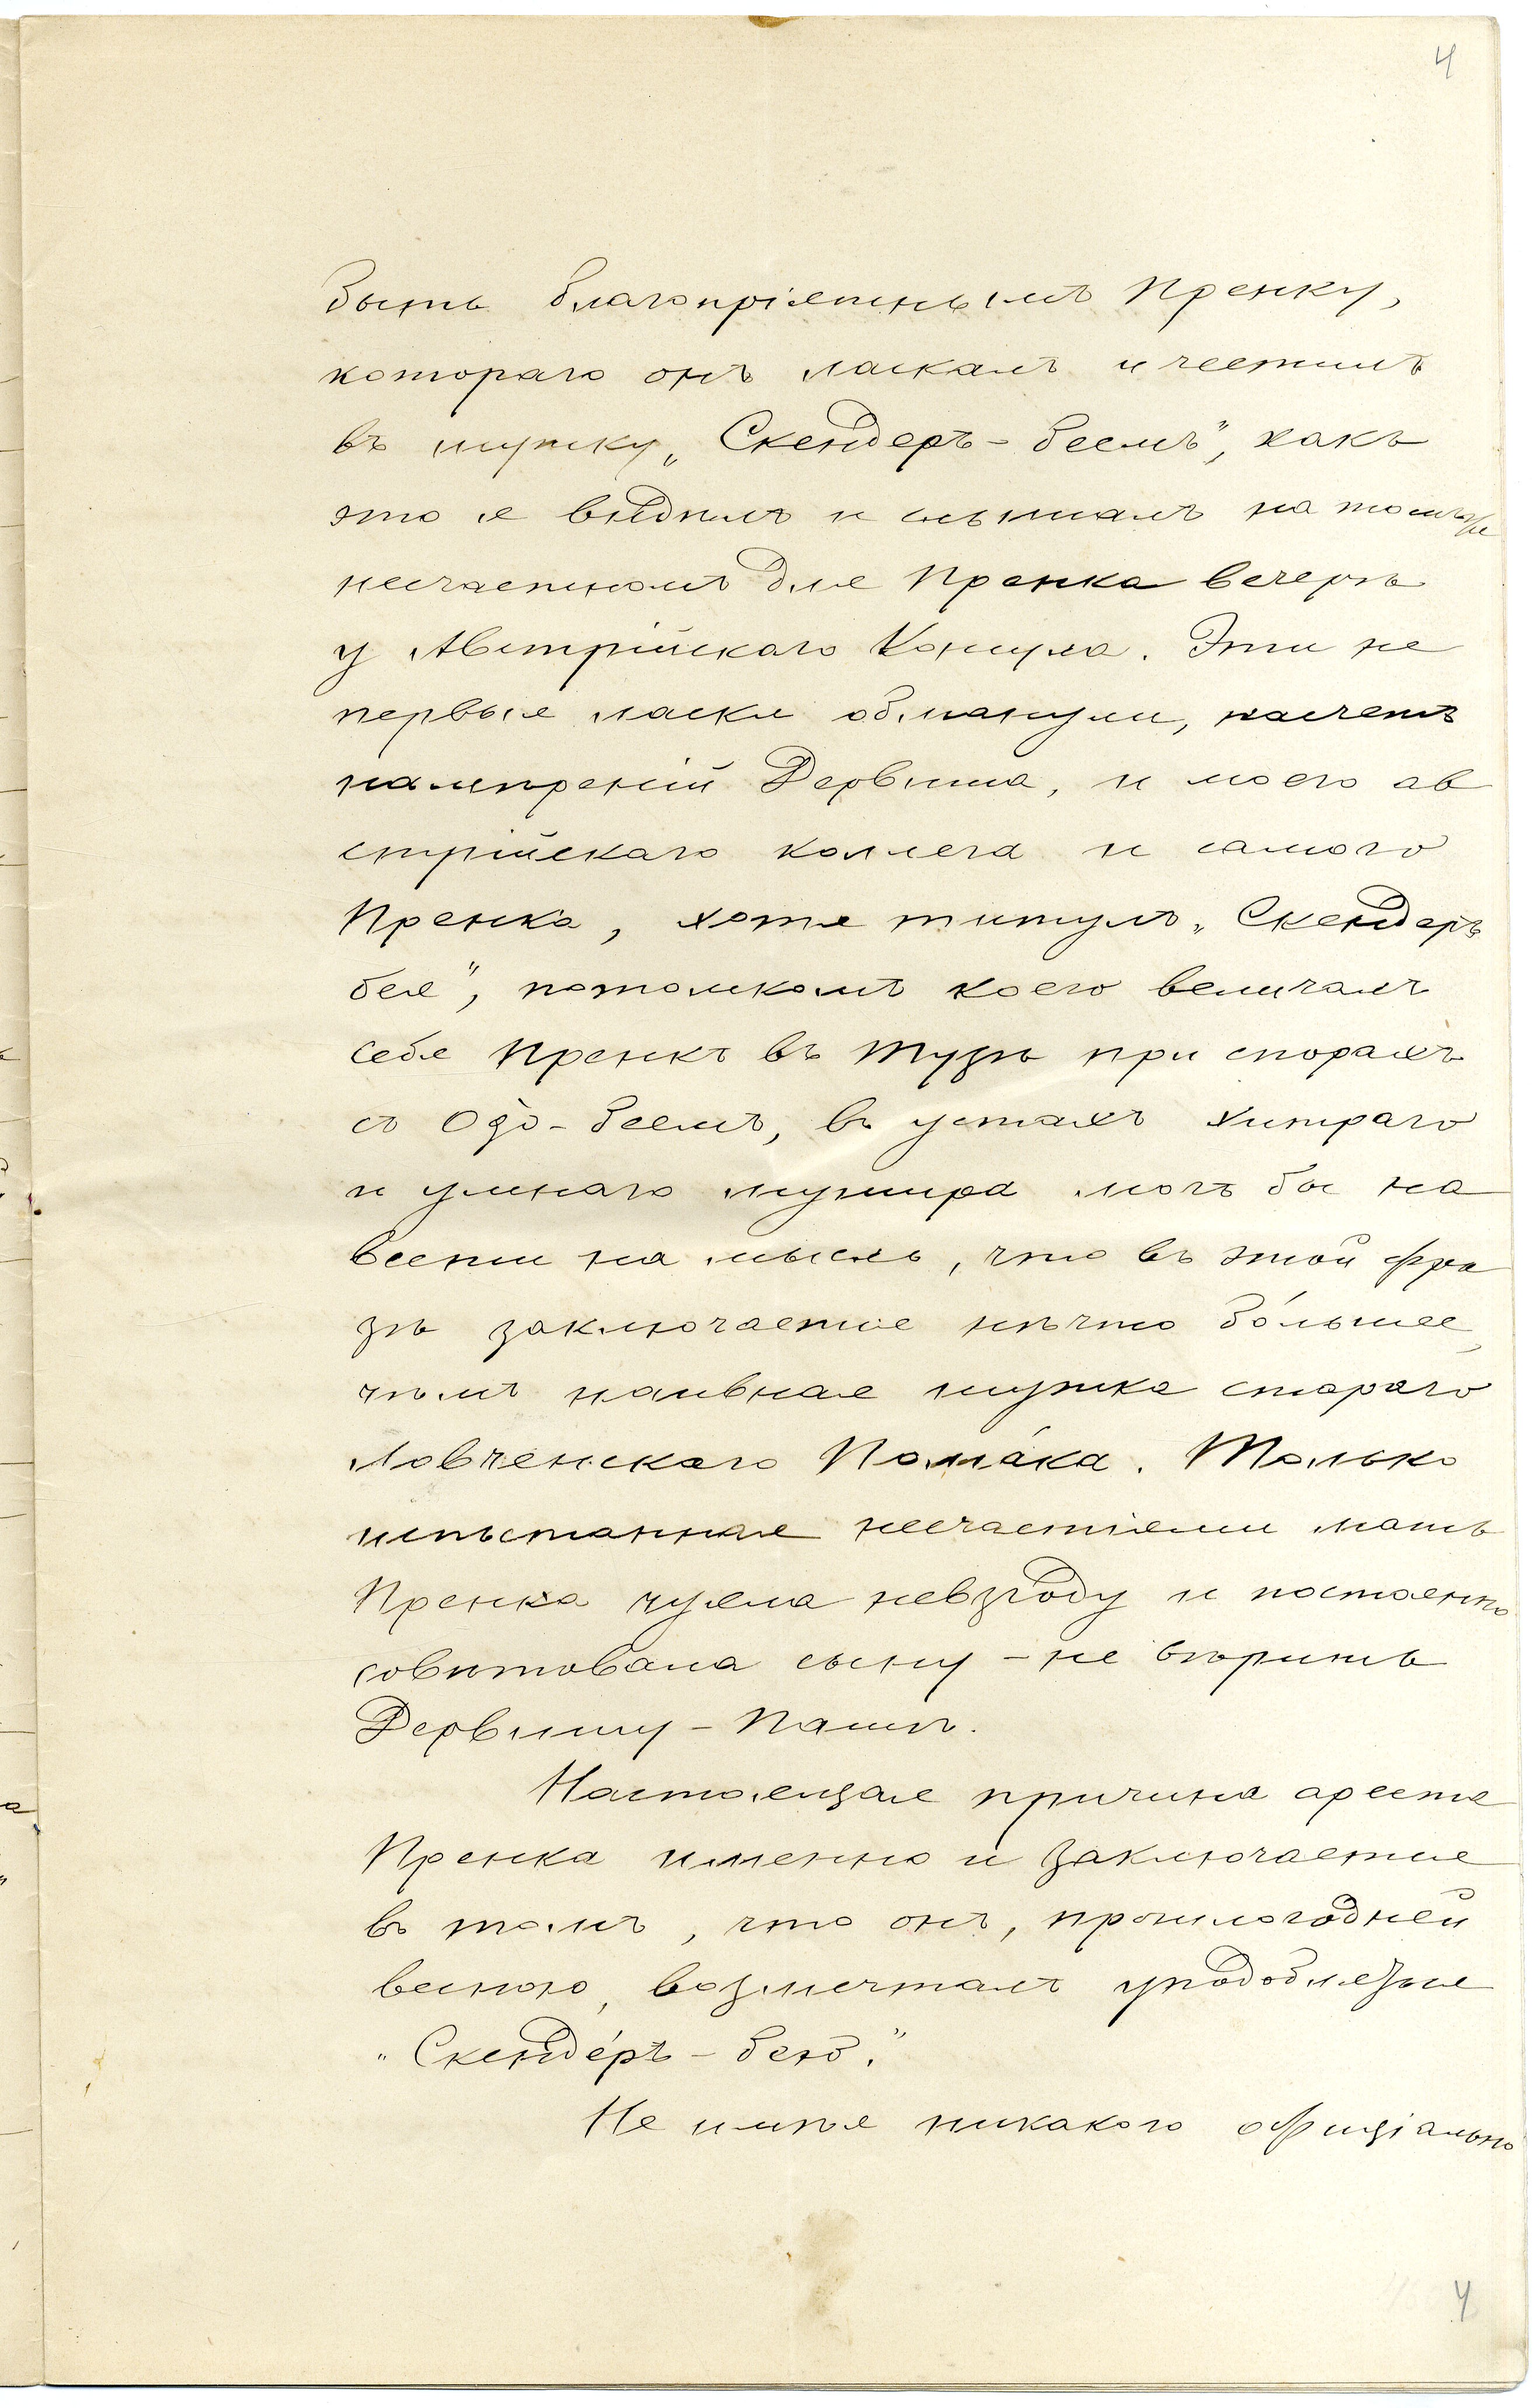 4
быть благопріятнымъ Пренку,
котораго онъ ласкалъ и честилъ
въ шутку „Скендеръ-беемъ", какъ
это я видѣлъ и слышалъ на томъ же
несчастномъ для Пренка вечерѣ
у Австрійскаго Консула. Эти не
первыя ласки обманули, насчетъ
намѣреній Дервиша, и моего ав
стрійскаго коллега и самого
Пренка, хотя титулъ „Скендеръ
бея", потомкомъ коего величалъ
себя Пренкъ въ Тузѣ при спорахъ
съ Одо-беемъ, въ устахъ хитраго
и умнаго мушира могъ бы на
вести на мысль, что въ этой фра
зѣ заключается нѣчто бóльшее,
чѣмъ наивная шутка стараго
Ловченскаго Помáка. Только
испытанная несчастіями мать
Пренка чуяла невзгоду и постоянно
совѣтовала сыну – не вѣрить
Дервишу-Пашѣ.
Настоящая причина ареста
Пренка именно и заключается
въ томъ, что онъ, прошлогодней
весною, возмечталъ уподобляться
„Скендéръ-бею."
Не имѣя никакого офиціально
4